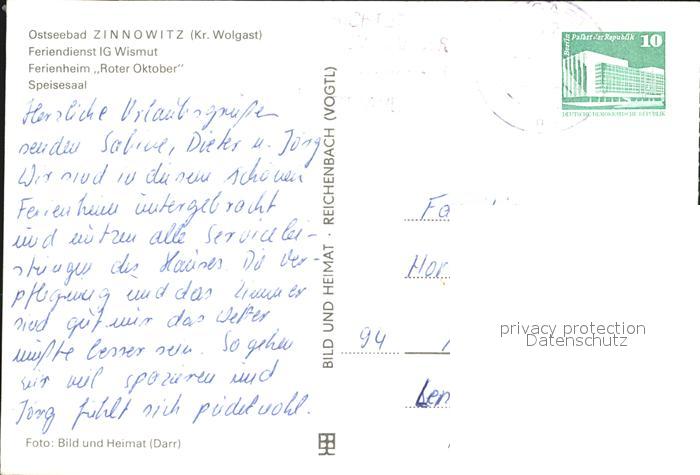 Ostseebad ZINNOWITZ (Kr. Wolgast)
Feriendienst IG Wismut
Ferienheim „Roter Oktober“
Speisesaal
Herzliche Urlaubsgrüße
senden Sabine, Dieter u. Jörg
Wir sind in diesem schönen
Ferienheim untergebracht
und nutzen alle Servicelei-
stungen des Hauses. Die Ver-
pflegung und das Zimmer
sind gut nur das Wetter
müßte besser sein. So gehen
wir viel spazieren und
Jörg fühlt sich pudelwohl.
Foto: Bild und Heimat (Darr)
BILD UND HEIMAT · REICHENBACH (VOGTL)
Berlin Palast der Republik 10
DEUTSCHE DEMOKRATISCHE REPUBLIK
Fa
Hor
94
Len
privacy protection
Datenschutz